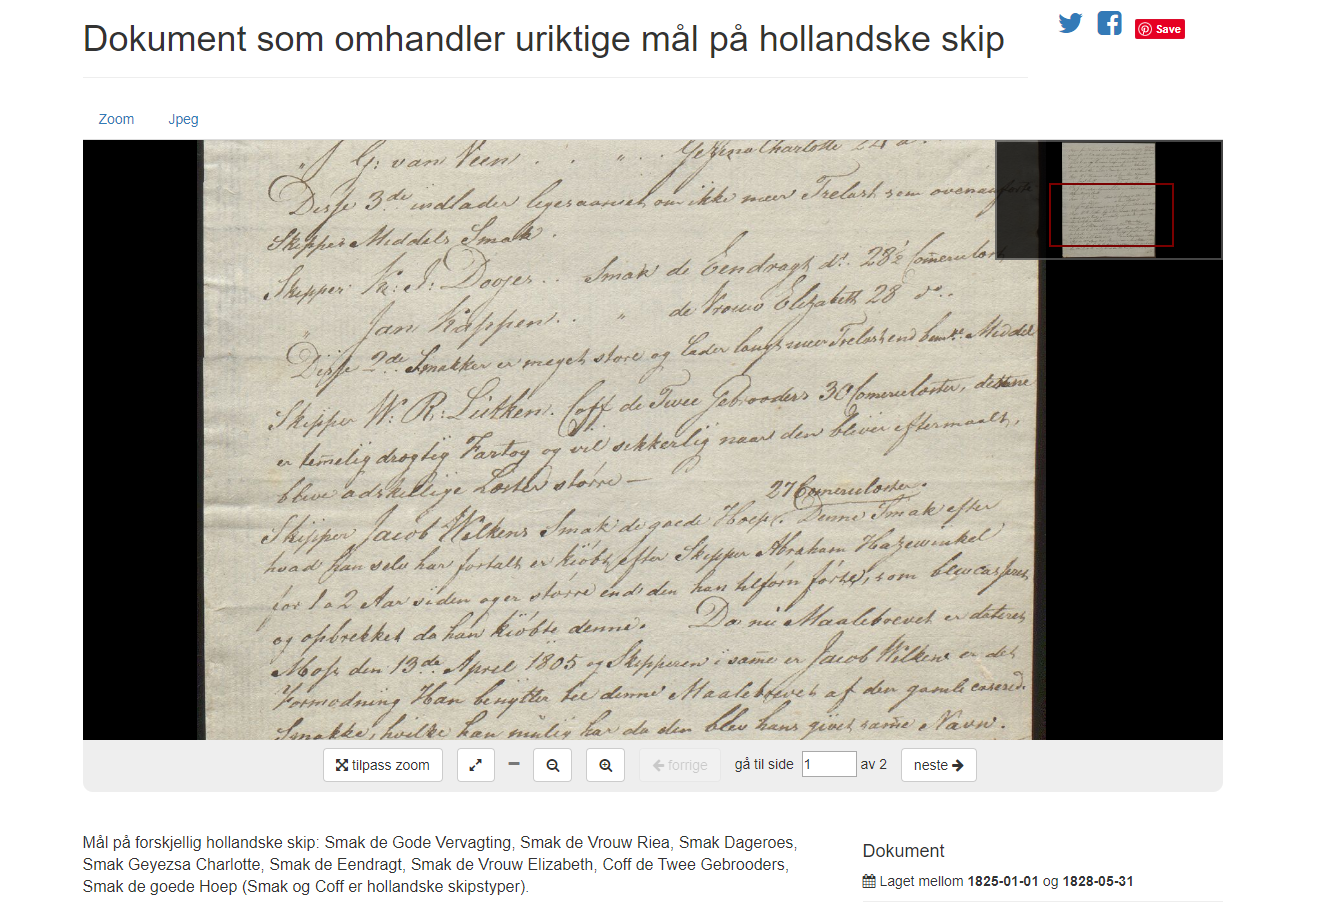 Dokument som omhandler uriktige mål på hollandske skip
Save
Zoom
Jpeg
" J G: van Veen . . " . . Geyezina Charlotte 24 a ..
Disse 3de indlader ligesaavel om ikke meer Trelast som ovenanførte
Skipper Meddels Smak .
Skipper K: J: Doojes .. Smak de Eendragt dt. 28½ Comerceloster
" Jan Kappen . . " de Vrouw Elizabeth 28 do ..
Disse 2de Smakker er meget store og lader langt meer Trelast end bem:te Meddel
Skipper W: R: Lütken. Coff de Twee Gebrooders 30 Comerceloster, dette
er temelig drøgtig Fartoy og vil sikkerlig naar den bliver eftermaalt,
bleve adskellige Loster större —
27 Comerceloster.
Skipper Jacob Wilkens Smak de goede Hoep. Denne Smak efter
hvad han selv har fortalt er kiöbt efter Skipper Abraham Hazewinkel
for 1 a 2 Aar siden og er större end den han tilforn förte, som blev casseret
og opbrekket da han kiöbte denne. Da nu Maalebrevet er dateret
Moss den 13de April 1805 og Skipperen i same er Jacob Wilkens er det
Formodning Han benytter til denne Maalebrevet af den gamle casered
Smakke, hvilke han mulig har da den blev hans givet same Navn.
tilpass zoom
forrige
gå til side 1 av 2
neste
Mål på forskjellig hollandske skip: Smak de Gode Vervagting, Smak de Vrouw Riea, Smak Dageroes,
Smak Geyezsa Charlotte, Smak de Eendragt, Smak de Vrouw Elizabeth, Coff de Twee Gebrooders,
Smak de goede Hoep (Smak og Coff er hollandske skipstyper).
Dokument
Laget mellom 1825-01-01 og 1828-05-31